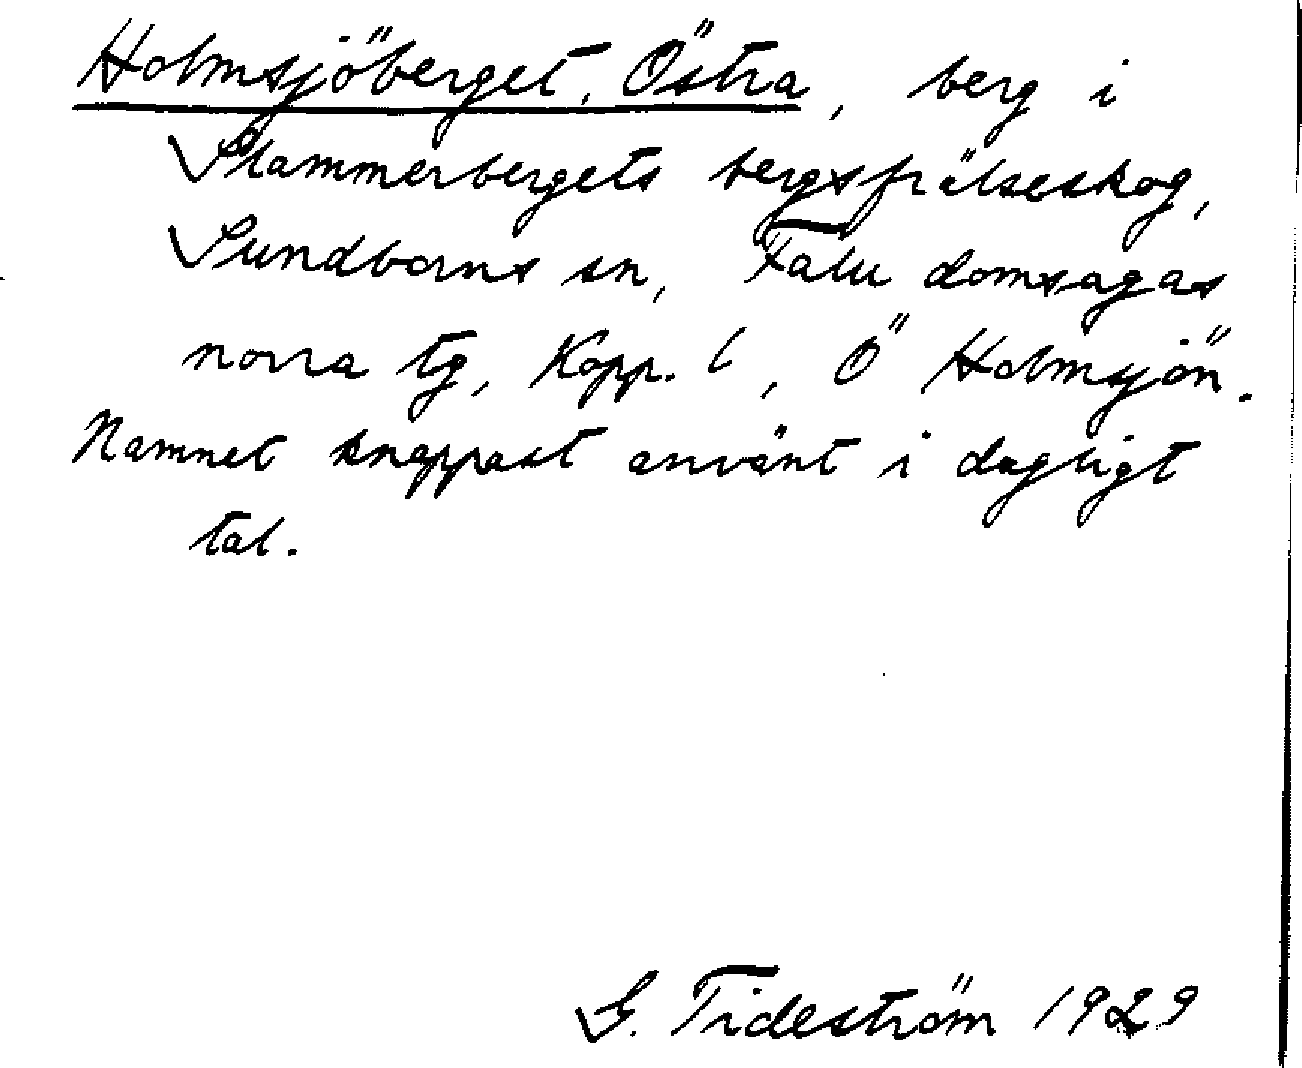 Holmsjöberget, Östra, berg i
Stammerbergets bergsfrälseskog,
Sundborns sn, Falu domsagas
norra tg, Kopp. l, Ö Holmsjön.
Namnet knappast använt i dagligt
tal.
G. Tideström 1929